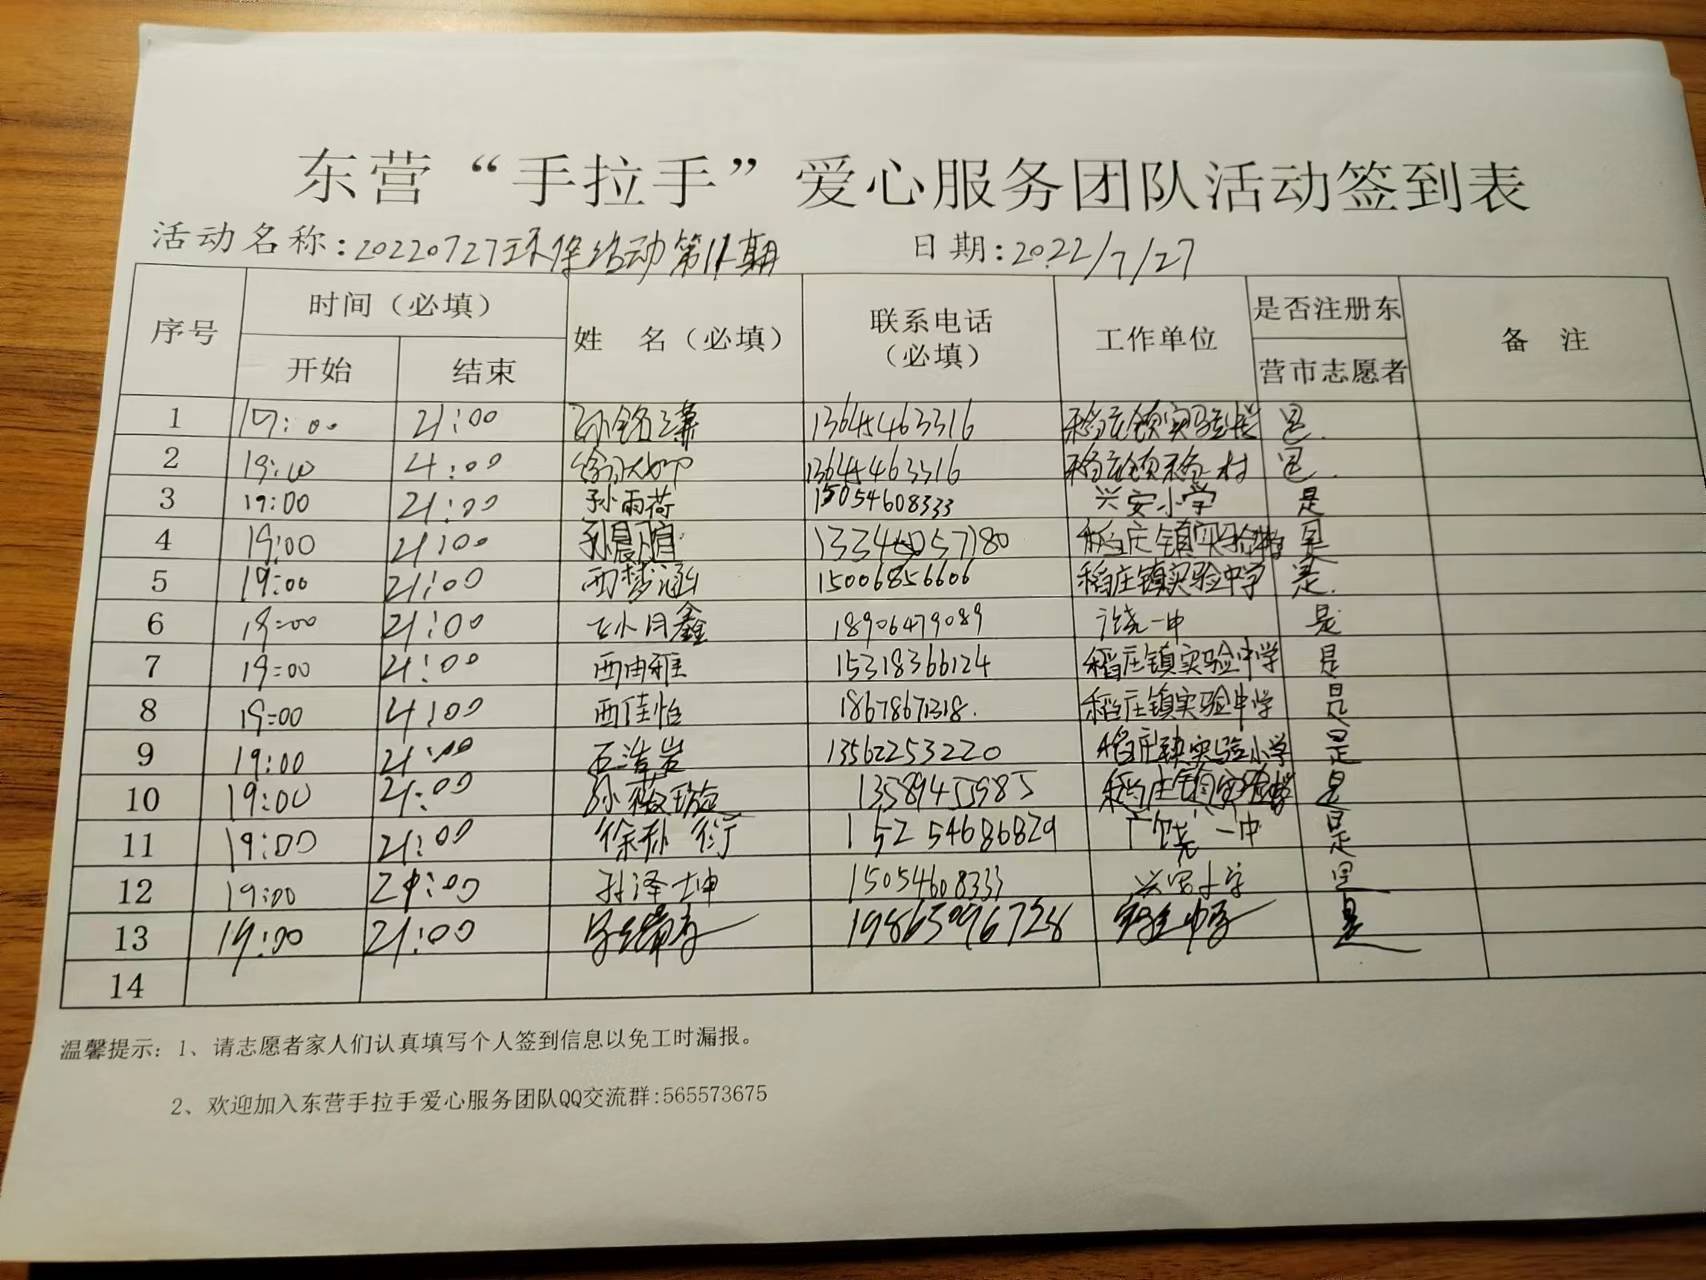 东营“手拉手”爱心服务团队活动签到表
活动名称:20220727环保活动第11期 日期:2022/7/27
序号 时间（必填） 开始 结束 姓 名（必填） 联系电话（必填） 工作单位 是否注册东营市志愿者 备 注
1 19:00 21:00 13645463316 稻庄镇实验 是.
2 19:00 21:00 13645463316 稻庄镇 村 是.
3 19:00 21:00 孙雨荷 15054608333 兴安小学 是
4 19:00 21:00 孙晨 稻庄镇实验 是
5 19:00 21:00 西梦涵 15006856606 稻庄镇实验中学 是.
6 19:00 21:00 鑫 18906479089 广饶一中 是
7 19:00 21:00 西由雅 15318366124 稻庄镇实验中学 是
8 19:00 21:00 西佳怡 18678671318. 稻庄镇实验中学 是
9 19:00 21:00 石浩岩 13562253220 稻庄镇实验小学 是
10 19:00 21:00 孙 璇 13589455985 稻庄镇实验 是
11 19:00 21:00 徐孙衍 15254686829 广饶一中 是
12 19:00 21:00 孙泽坤 15054608333 兴安小学 是
13 19:00 21:00 19865096728 是
14
温馨提示：1、请志愿者家人们认真填写个人签到信息以免工时漏报。
2、欢迎加入东营手拉手爱心服务团队QQ交流群:565573675